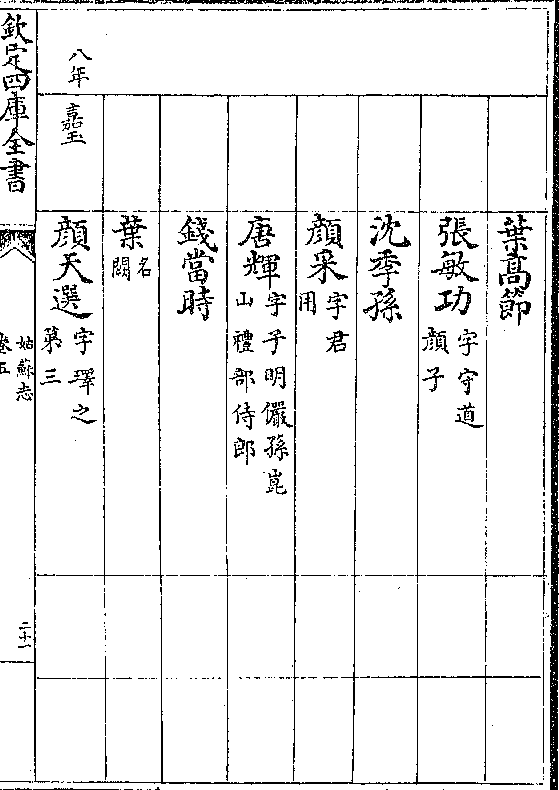 葉髙節
張敏功字守道顔子
沈季孫
顔采字君用
唐輝字子明儼孫崑山禮部侍郎
錢當時
葉名闕
八年 嘉王 顔天選字琿之第三
欽定四庫全書
姑蘇志
卷五
二十一